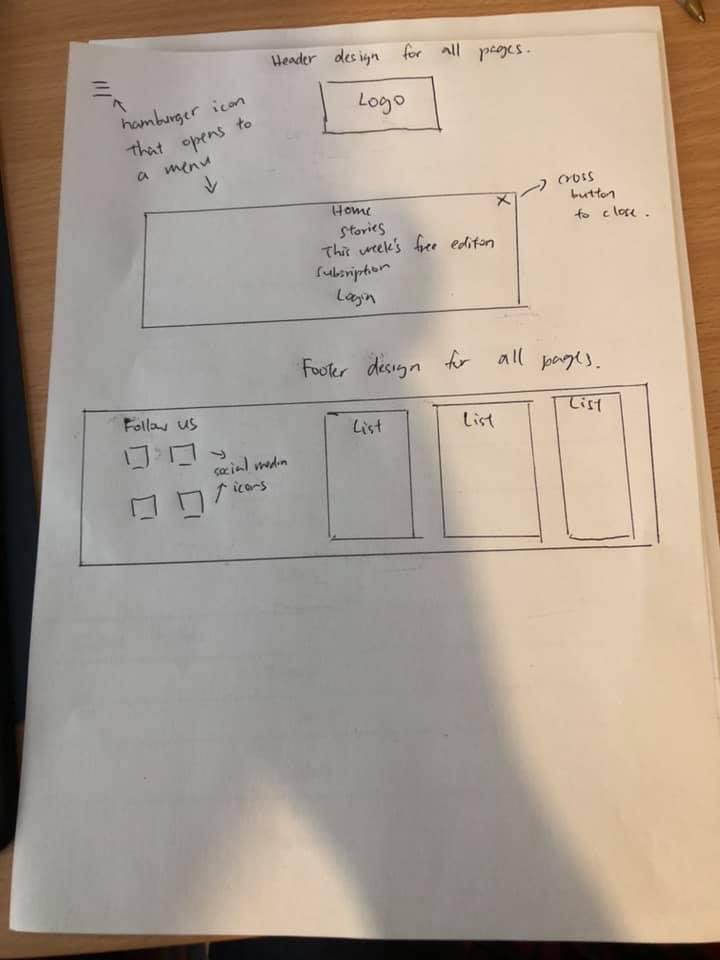 Header design for all pages.
Logo
hamburger icon
that opens to
a menu
X
cross
button
to close.
Home
Stories
This week's free editon
Subsription
Login
Footer design for all pages.
Follow us
social media
icons
List
List
List